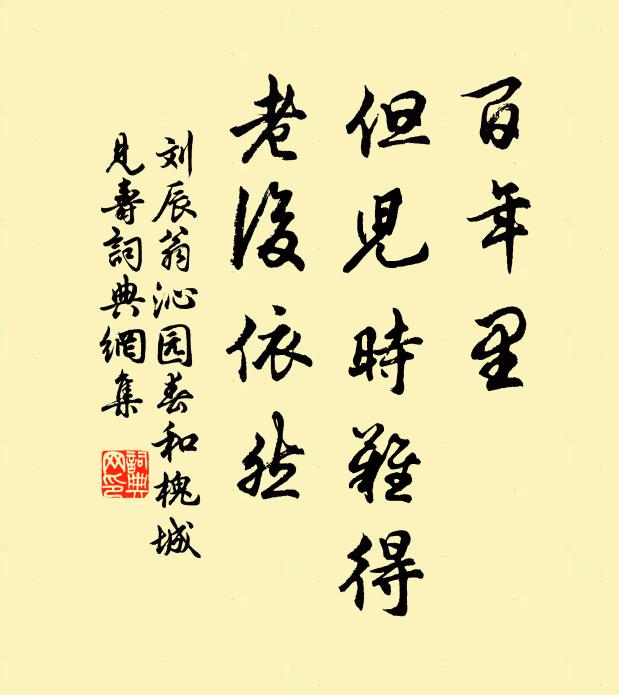 百年里
但児時難得
老後依然
刘辰翁沁园春和槐城
見壽詞典網集
詞典網印